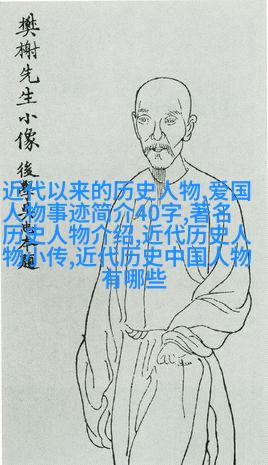 樊榭先生小像
後學
本題
近代以来的历史人物,爱国
人物事迹简介40字,著名
历史人物介绍,近代历史人
物小传,近代历史中国人物
有哪些